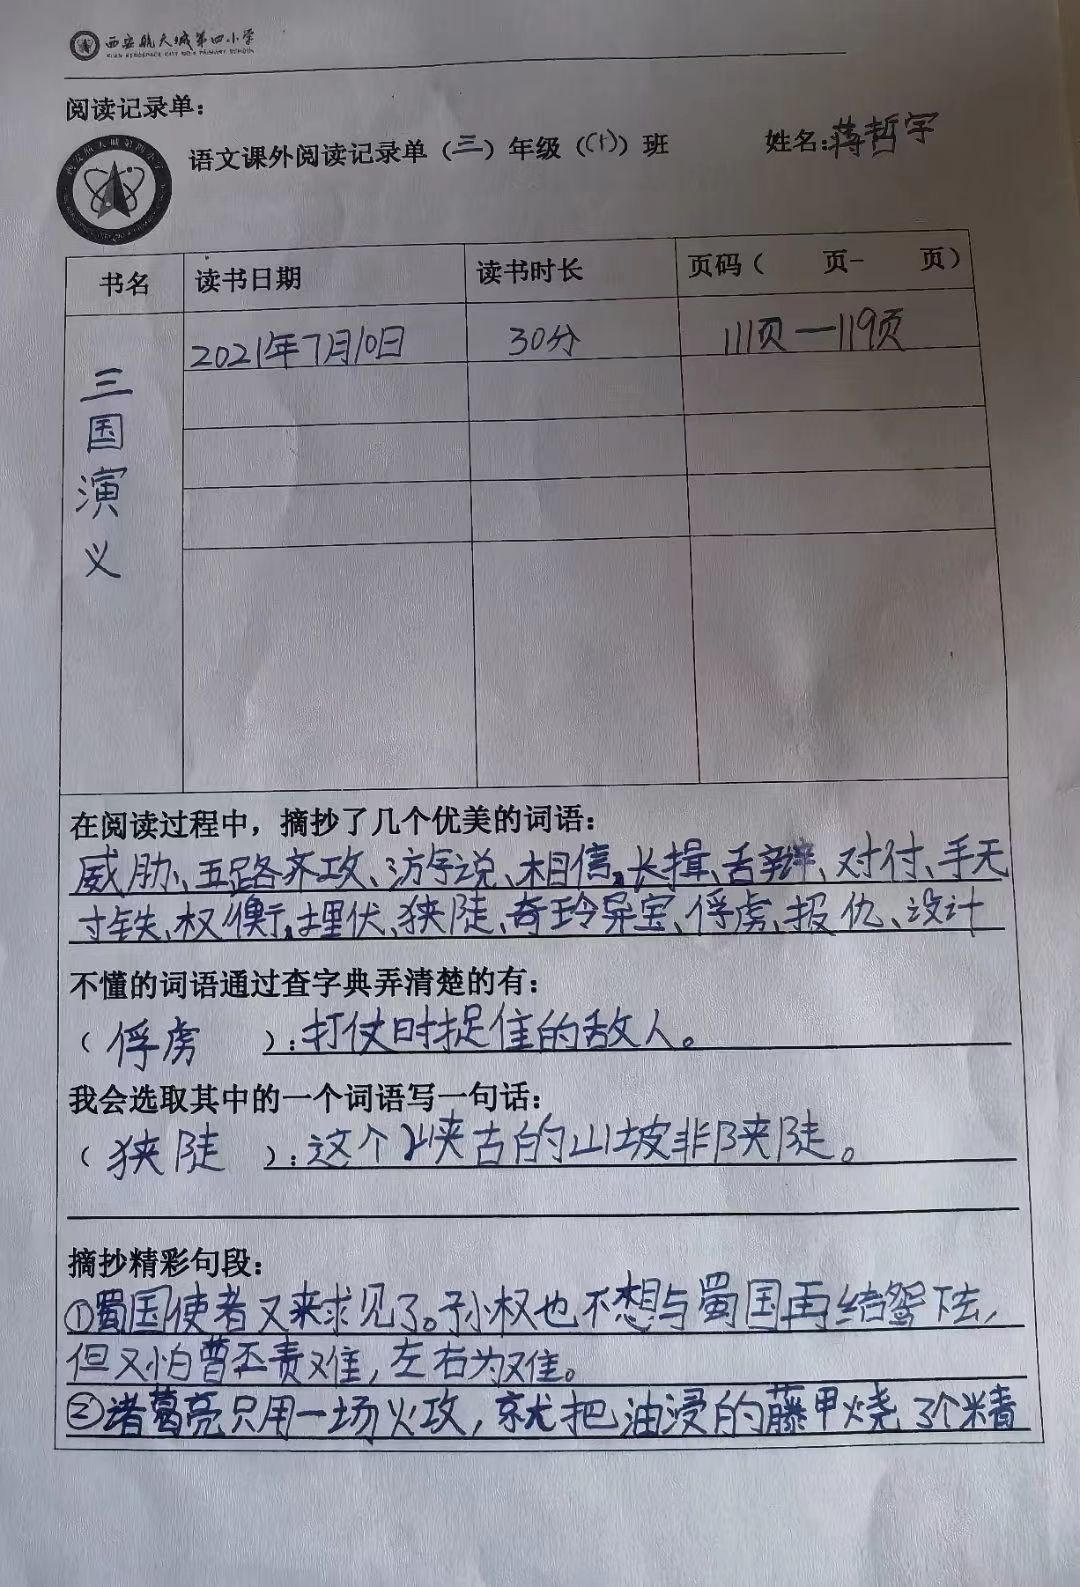 西安航天城第四小学
XIAN AEROSPACE CITY NO.4 PRIMARY SCHOOL
阅读记录单：
语文课外阅读记录单（三）年级（(十)）班 姓名:蒋哲宇
书名 读书日期 读书时长 页码（ 页- 页）
三国演义 2021年7月10日 30分 111页—119页
在阅读过程中，摘抄了几个优美的词语：
威胁、五路齐攻、游说、相信、长揖、舌辩、对付、手无
寸铁、权衡、埋伏、狭陡、奇玲异宝、俘虏、报仇、设计
不懂的词语通过查字典弄清楚的有：
（俘虏 ）：打仗时捉住的敌人。
我会选取其中的一个词语写一句话：
（狭陡 ）：这个峡古的山坡非陕陡。
摘抄精彩句段：
①蜀国使者又来求见了。孙权也不想与蜀国再结怨下去，
但又怕曹丕责难，左右为难。
②诸葛亮只用一场火攻，就把油浸的藤甲烧了个精